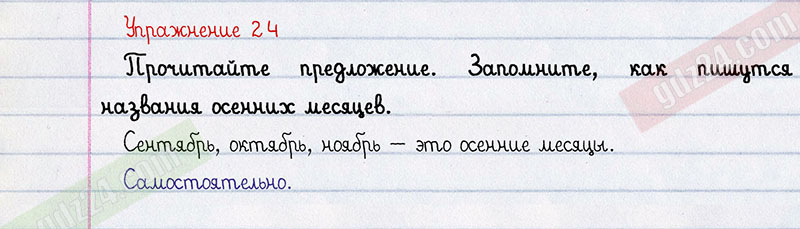 Упражнение 24
Прочитайте предложение. Запомните, как пишутся
названия осенних месяцев.
Сентябрь, октябрь, ноябрь – это осенние месяцы.
Самостоятельно.
gdz24.com
gdz24.com